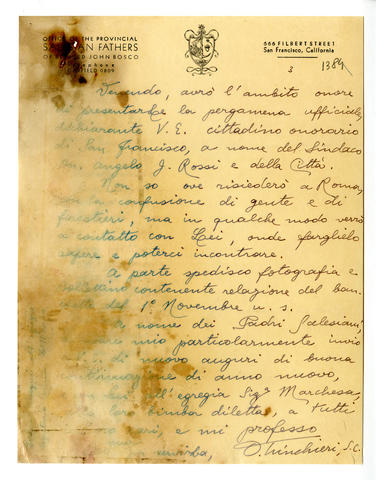 OFFICE OF THE PROVINCIAL
SALESIAN FATHERS
OF BLESSED JOHN BOSCO
Telephone
GARFIELD 0809
666 FILBERT STREET
San Francisco, California
3
1389
Venendo, avrò l'ambito onore
presentarLe la pergamena ufficiale,
dichiarante V. E. cittadino onorario
di San Francisco, a nome del Sindaco
On. Angelo J. Rossi e della Città.
Non so ove risiederò a Roma,
la confusione di gente e di
forestieri, ma in qualche modo verrò
a contatto con Lei, onde farglielo
sapere e poterci incontrare.
A parte spedisco fotografia e
bollettino contenente relazione del ban-
del 1º Novembre u. s.
A nome dei Padri Salesiani,
mio particolarmente invio
di nuovo auguri di buona
di anno nuovo,
all'egregia Sig.ª Marchesa,
bimba diletta, a tutti
cari, e mi professo
O. Trinchieri, S.C.